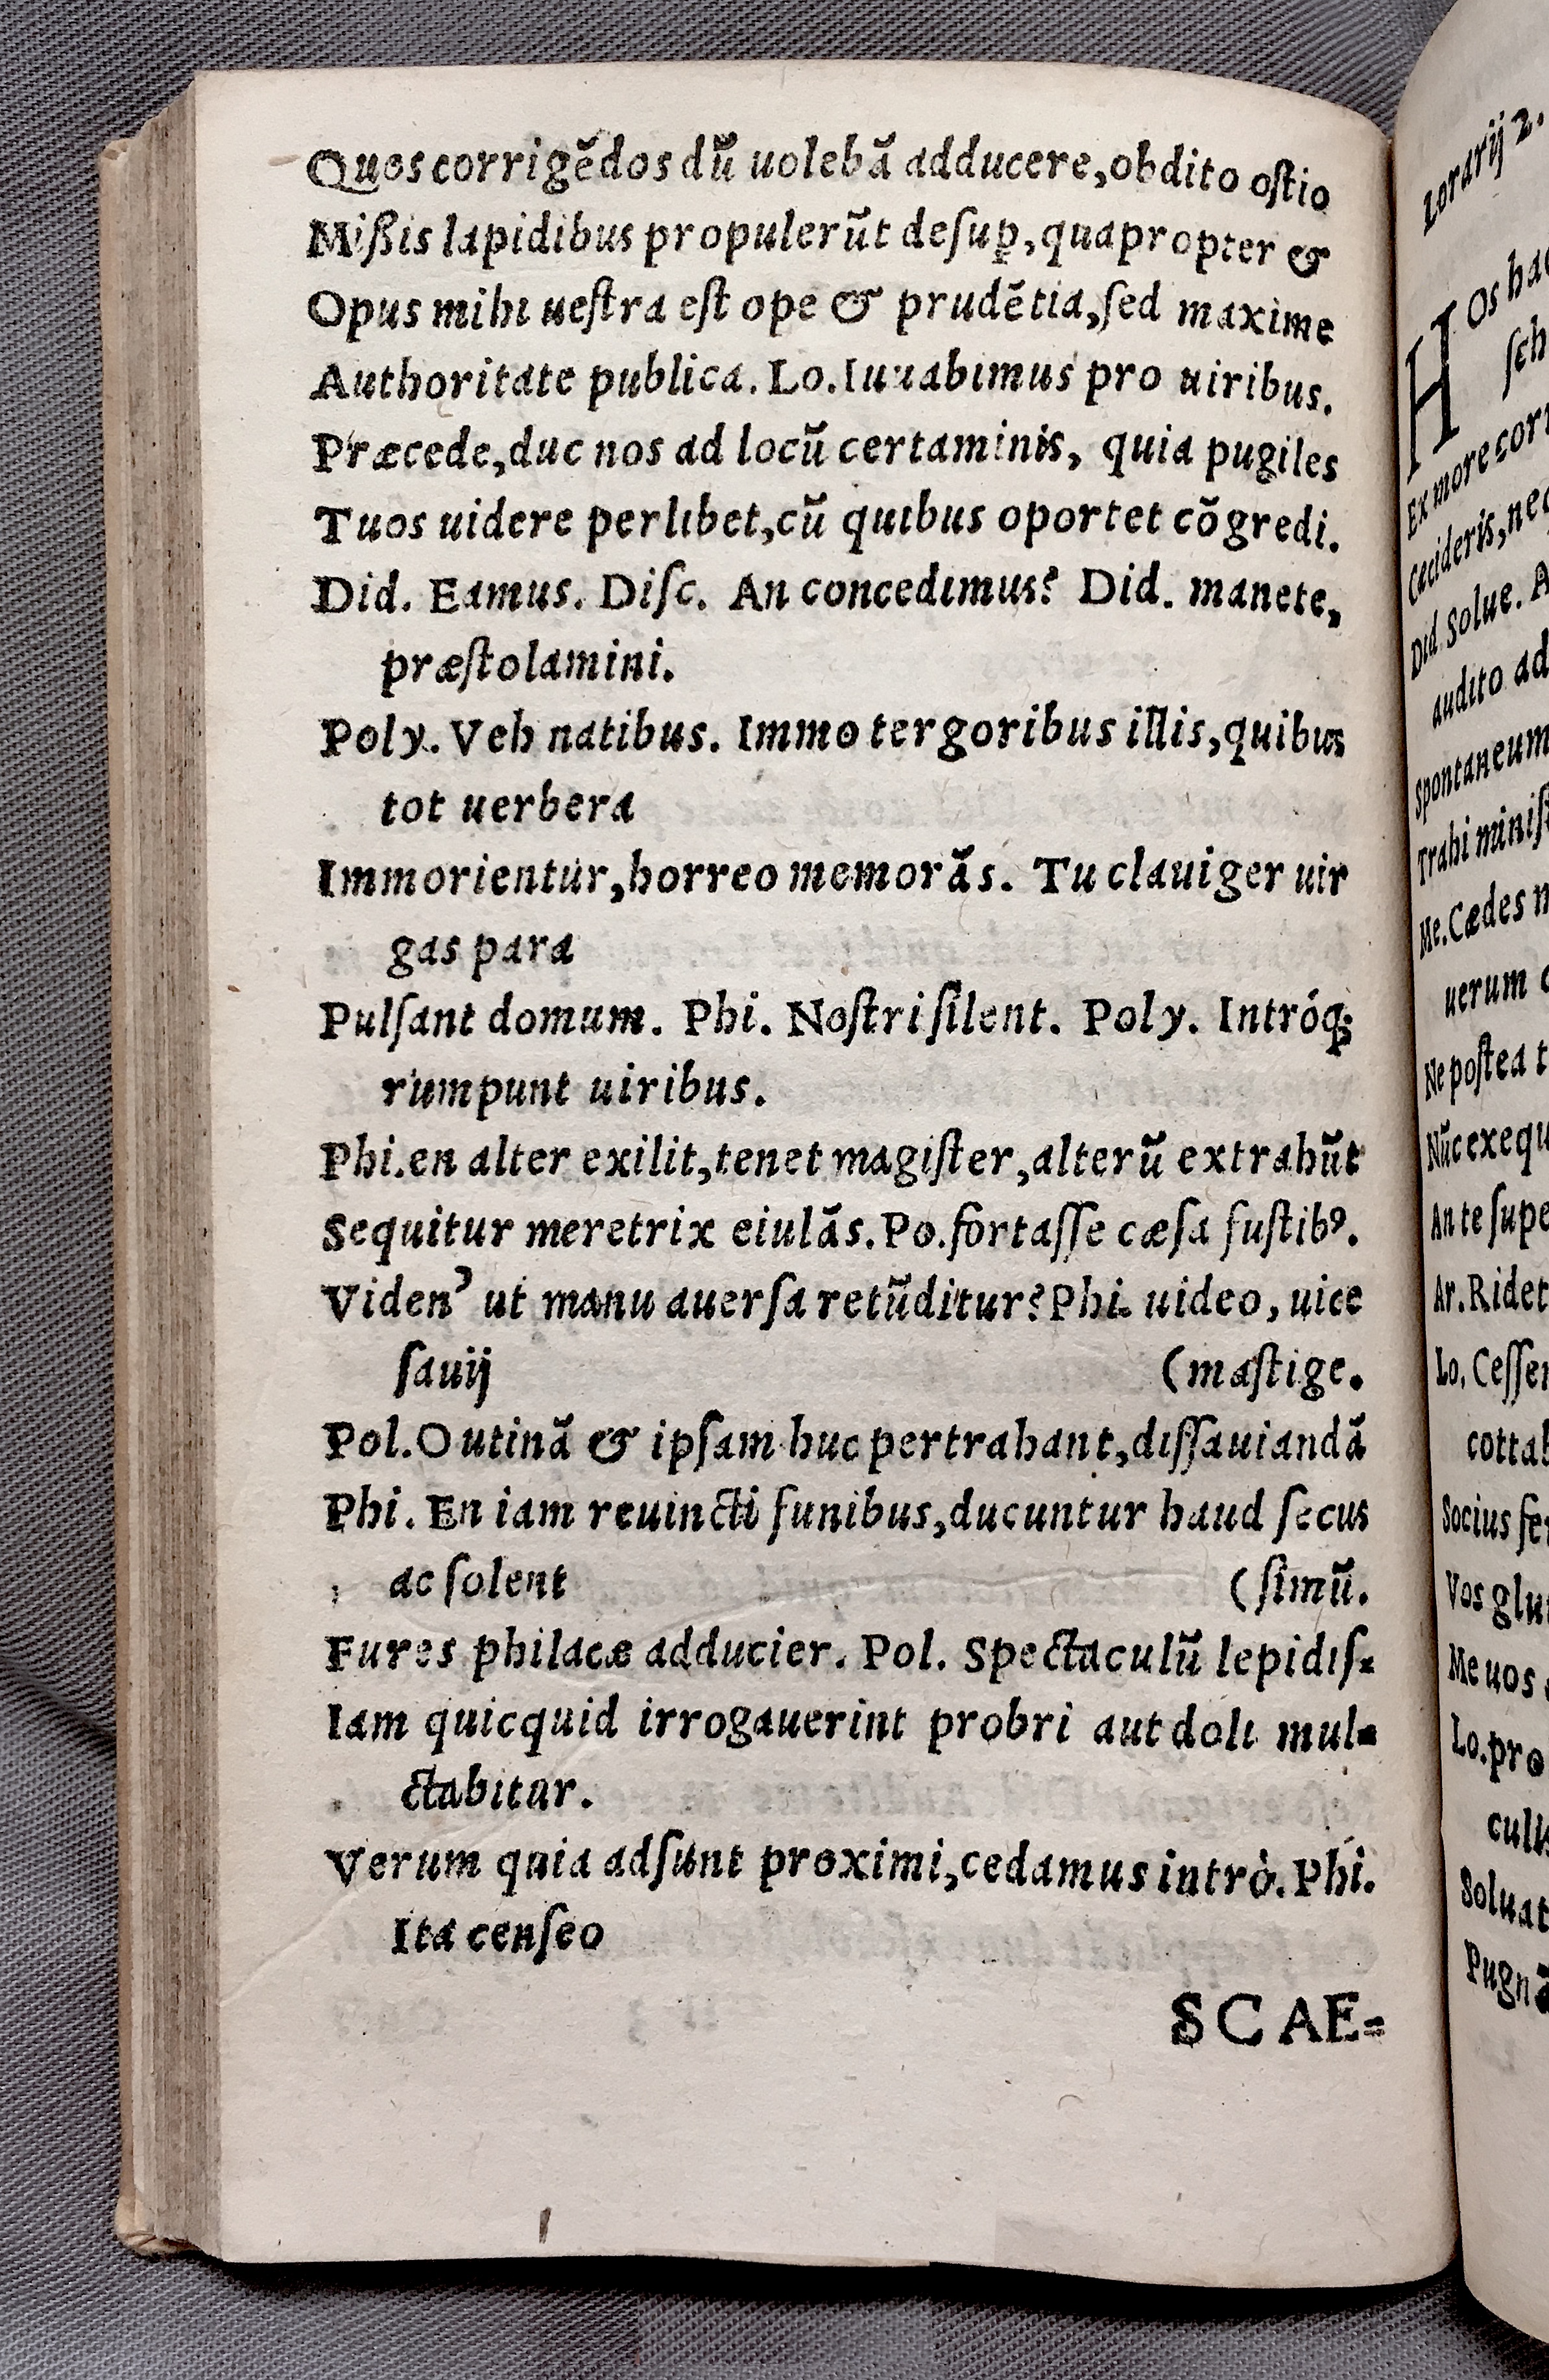 Quos corrigēdos dū uolebā adducere, obdito oſtio
Mißis lapidibus propulerūt deſup̱, quapropter &
Opus mihi ueſtra eſt ope & prudētia, ſed maxime
Authoritate publica. Lo. Iuuabimus pro uiribus.
Præcede, duc nos ad locū certaminis, quia pugiles
Tuos uidere perlibet, cū quibus oportet cōgredi.
Did. Eamus. Diſc. An concedimus? Did. manete,
præſtolamini.
Poly. Veh natibus. Immo tergoribus illis, quibus
tot uerbera
Immorientur, horreo memorās. Tu clauiger uir
gas para
Pulſant domum. Phi. Noſtri ſilent. Poly. Intróq;
rumpunt uiribus.
Phi. en alter exilit, tenet magiſter, alterū extrahūt
Sequitur meretrix eiulās. Po. fortaſſe cæſa fuſtibꝰ.
Viden' ut manu auerſa retūditur? Phi. uideo, uice
ſauij (maſtige.
Pol. O utinā & ipſam huc pertrahant, diſſauiandā
Phi. En iam reuincti funibus, ducuntur haud ſecus
ac ſolent (ſimū.
Fures philacæ adducier. Pol. Spectaculū lepidiſ-
Iam quicquid irrogauerint probri aut doli mul-
ctabitur.
Verum quia adſunt proximi, cedamus intrò. Phi.
Ita cenſeo
SCAE-
Lorarij 2.
HOs hac
ſch
Ex more corr
Cecideris, nec
Did. Solue. A
audito ad
Spontaneum
Trahi miniſt
Me. Cædes n
uerum
Ne poſtea t
Nūc exequ
An te ſupe
Ar. Ridet
Lo. Ceſſer
cottab
Socius fer
Vos glu
Me uos
Lo. pro
culis
Soluat
Pugnā